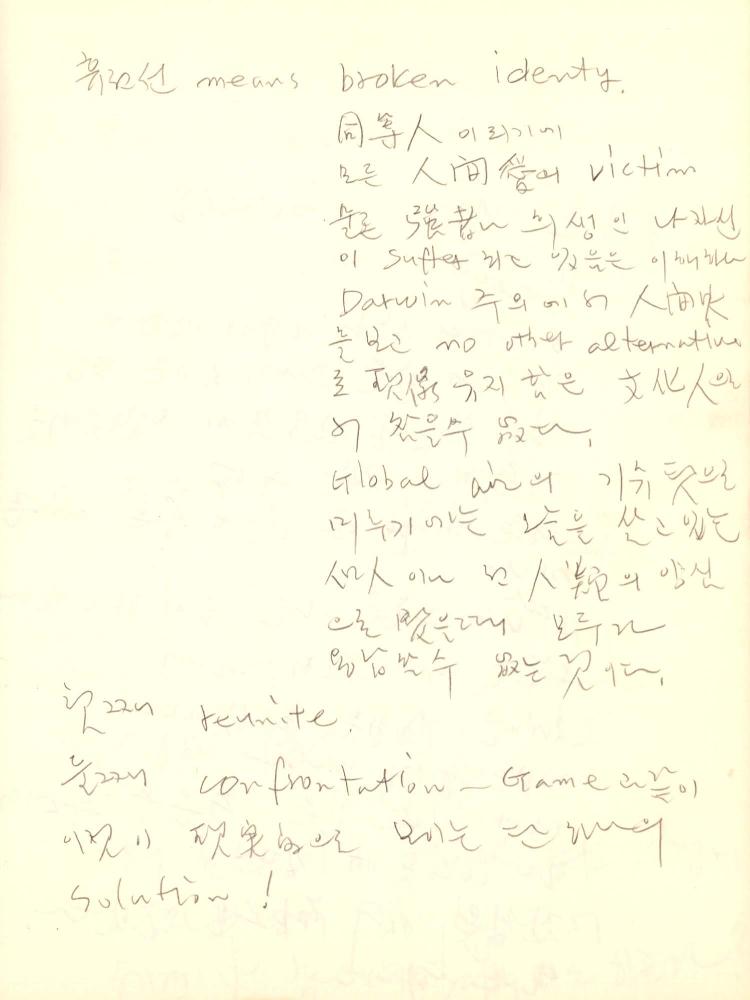 휴전선 means broken identy.
同等人 이라기에
모든 人間 victim
물론 强者나 희생인 나자신
이 suffer 하고 있음은 이해하나
Darwin 주의에서 人間史
를 보고 no other alternative
로 現像유지 함은 文化人으로
서 참을수 없다.
Global air의 기슈 탓으로
미루기에는 오늘을 살고 있는
人이나 먼 人類의 양심
으로 봤을때 모두가
용납 수 없는 것이다.
첫째 reunite.
둘째 confrontation - Game
이것이 現実的으로 보이는 단 하나의
solution!